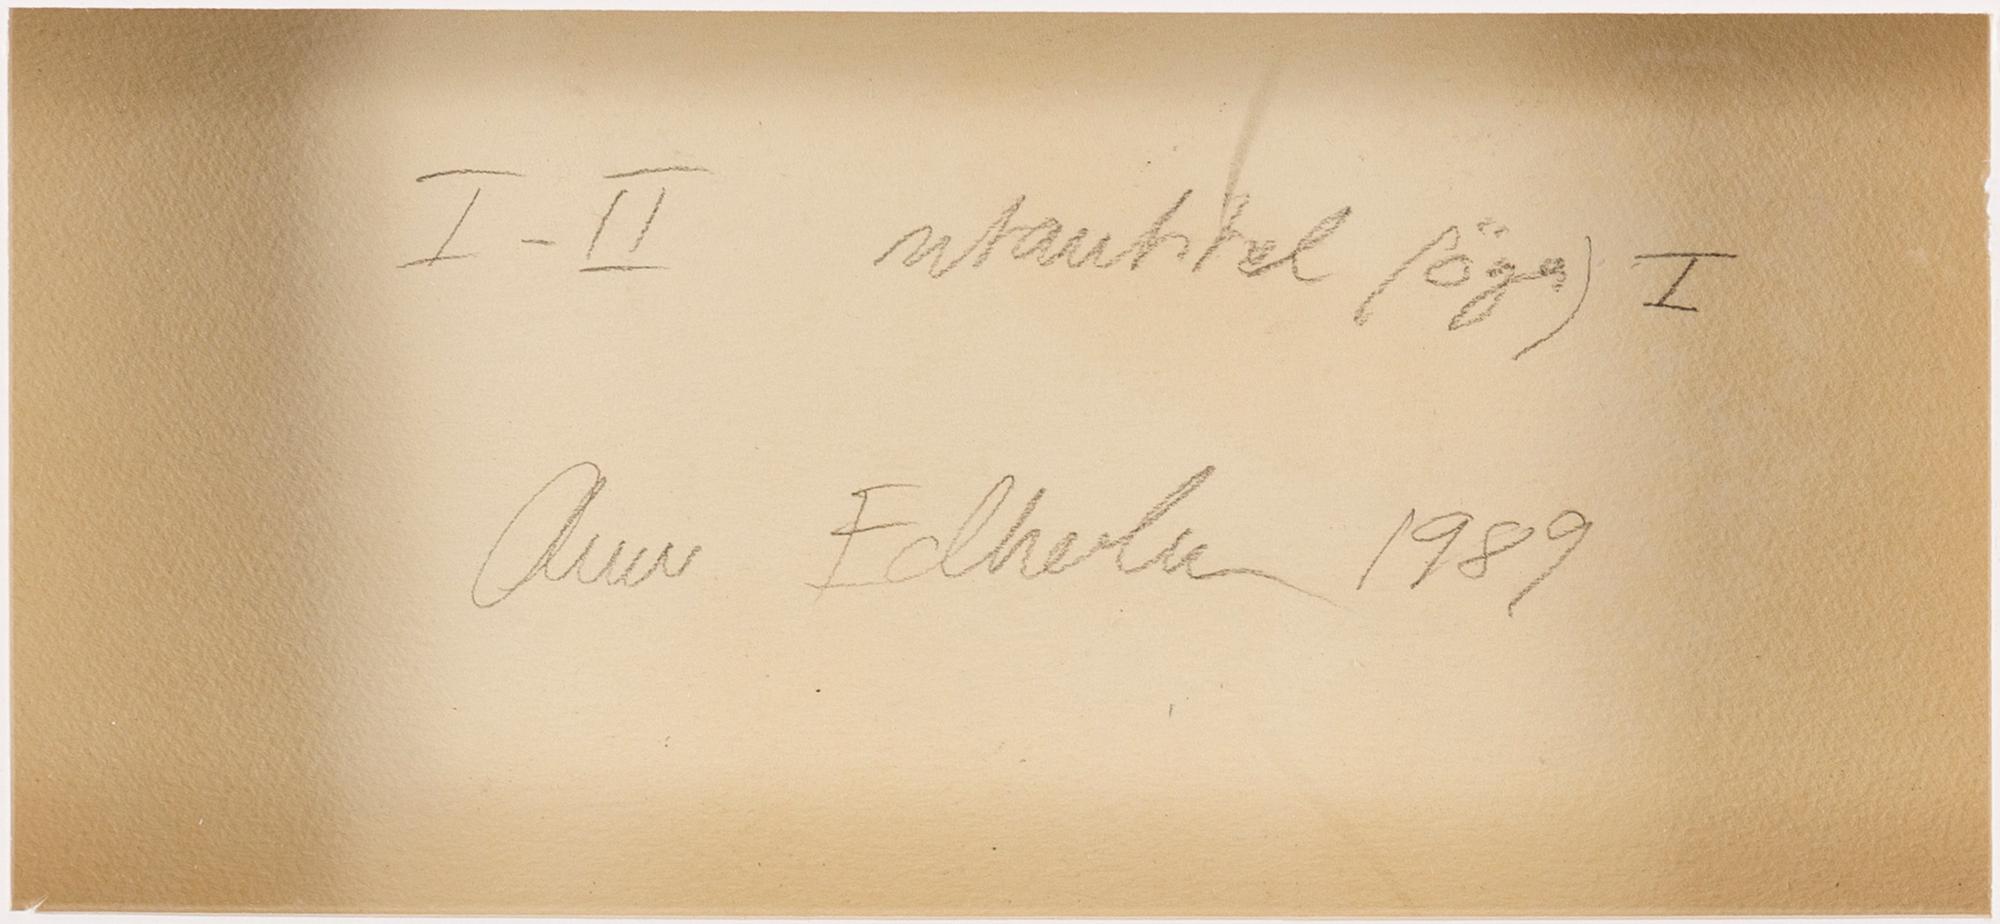 I-II utantitel (öga) I
Ann Edholm 1989